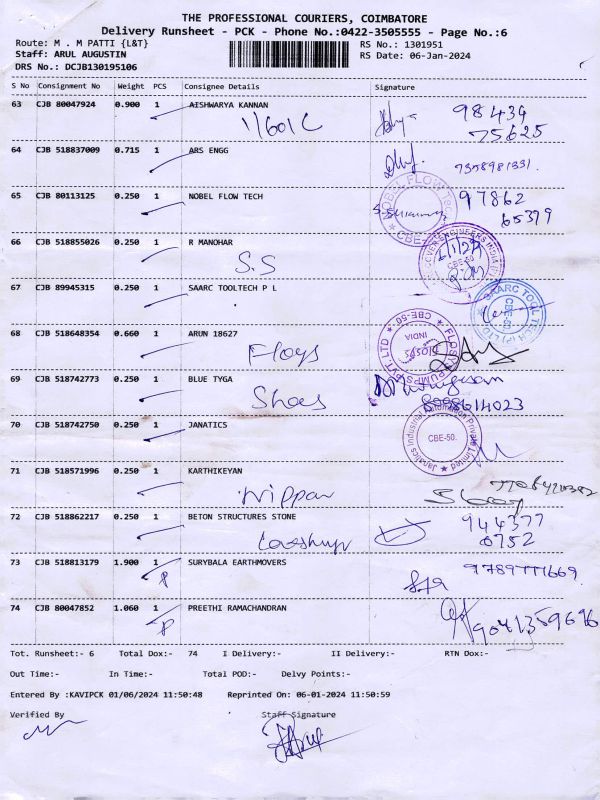 THE PROFESSIONAL COURIERS, COIMBATORE
Delivery Runsheet - PCK - Phone No.:0422-3505555 - Page No.:6
Route: M . M PATTI {L&T}
RS No.: 1301951
Staff: ARUL AUGUSTIN
RS Date: 06-Jan-2024
DRS No.: DCJB130195106
S No Consignment No Weight PCS Consignee Details Signature
63 CJB 80047924 0.900 1 AISHWARYA KANNAN 98434
75625
64 CJB 518837009 0.715 1 ARS ENGG
7358981331.
65 CJB 80113125 0.250 1 NOBEL FLOW TECH 97862
65379
NOBEL FLOW
CBE
66 CJB 518855026 0.250 1 R MANOHAR
S.S
CBE-50
67 CJB 89945315 0.250 1 SAARC TOOLTECH P L
SAARC TOOL TECH (P) LTD
68 CJB 518648354 0.660 1 ARUN 18627
CBE-50.
INDIA
PUMPS PVT. LTD
69 CJB 518742773 0.250 1 BLUE TYGA
8098614023
70 CJB 518742750 0.250 1 JANATICS
Janatics Industrial Automation Private Limited
CBE-50.
71 CJB 518571996 0.250 1 KARTHIKEYAN
Nippon
72 CJB 518862217 0.250 1 BETON STRUCTURES STONE 944377
6752
73 CJB 518813179 1.900 1 SURYBALA EARTHMOVERS
P
74 CJB 80047852 1.060 1 PREETHI RAMACHANDRAN
P
9041359696
Tot. Runsheet:- 6 Total Dox:- 74 I Delivery:- II Delivery:- RTN Dox:-
Out Time:- In Time:- Total POD:- Delvy Points:-
Entered By :KAVIPCK 01/06/2024 11:50:48 Reprinted On: 06-01-2024 11:50:59
Verified By Staff Signature